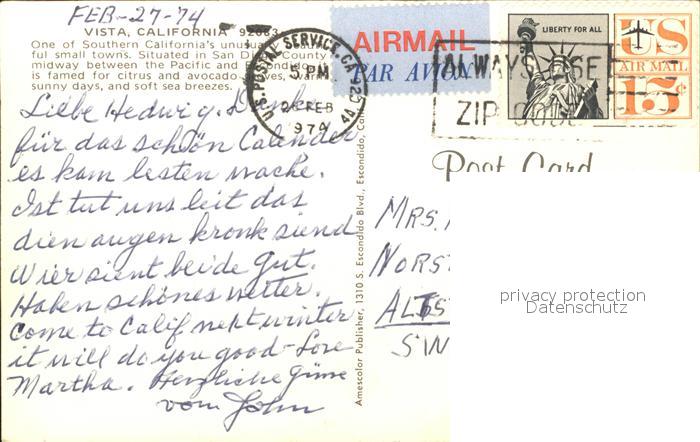 FEB-27-74
VISTA, CALIFORNIA 92083
One of Southern California's unusually beauti-
ful small towns. Situated in San Diego County
midway between the Pacific and Escondido
is famed for citrus and avocado groves, warm
sunny days, and soft sea breezes.
Liebe Hedwig. Danke
für das schön Calender
es kam lesten wache.
Ist tut uns leit das
dien augen kronk siend
Wier sient beide gut.
Haben schönes wetter.
Come to Calif next winter
it will do you good-Love
Martha. Herzliche Grüse
vom John
Amescolor Publisher, 1310 S. Escondido Blvd., Escondido,
U.S. POSTAL SERVICE, CA
PM
FEB
1974
AIRMAIL
PAR AVION
ALWAYS USE
ZIP CODE
LIBERTY FOR ALL
US
AIR MAIL
15¢
Post Card
MRS.
privacy protection
Datenschutz